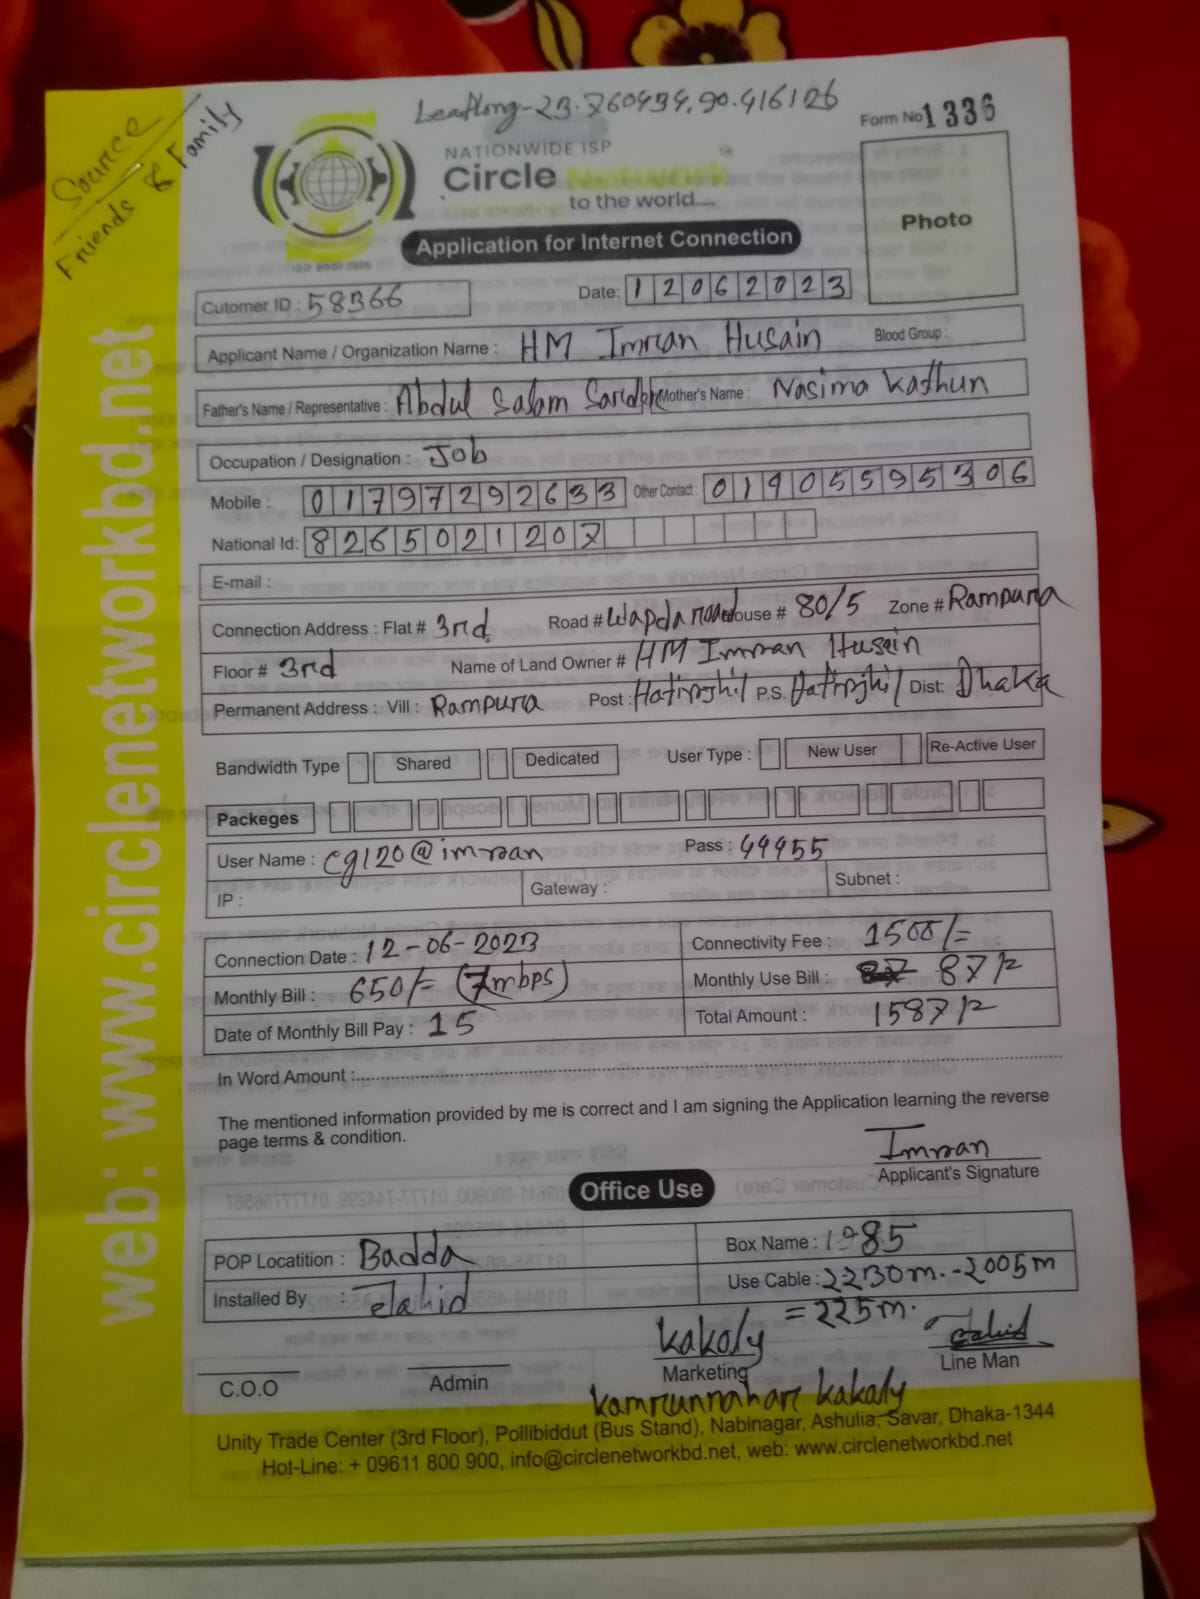 Source
Friends & Family
23.760434,90.416126
Form No 1336
NATIONWIDE ISP
Circle Network
to the world....
Photo
Application for Internet Connection
ISO 9001:2015
Cutomer ID : 58366
Date: 12062023
Applicant Name / Organization Name : HM Imran Husain Blood Group :
Father's Name / Representative : Abdul Salam Mother's Name : Nasima Kathun
Occupation / Designation : Job
Mobile : 01797292633 Other Contact : 01905595306
National Id: 8265021207
E-mail :
Connection Address : Flat # 3rd Road # Wapda road House # 80/5 Zone # Rampura
Floor # 3rd Name of Land Owner # HM Imran Husain
Permanent Address : Vill : Rampura Post : Hatirjhil P.S. Hatirjhil Dist: Dhaka
Bandwidth Type Shared Dedicated User Type : New User Re-Active User
Packeges
User Name : cg120@imran Pass : 44455
IP : Gateway : Subnet :
Connection Date : 12-06-2023 Connectivity Fee : 1500/=
Monthly Bill : 650/= (7mbps) Monthly Use Bill : 87/=
Date of Monthly Bill Pay : 15 Total Amount : 1587/=
In Word Amount :
The mentioned information provided by me is correct and I am signing the Application learning the reverse
page terms & condition.
Imran
Applicant's Signature
Office Use
POP Locatition : Badda Box Name : 1985
Installed By : Use Cable : 2230m.-2005m
= 225m.
Kakoly
C.O.O Admin Marketing Line Man
Kamrunnahar Kakaly
Unity Trade Center (3rd Floor), Pollibiddut (Bus Stand), Nabinagar, Ashulia, Savar, Dhaka-1344
Hot-Line: + 09611 800 900, info@circlenetworkbd.net, web: www.circlenetworkbd.net
web: www.circlenetworkbd.net